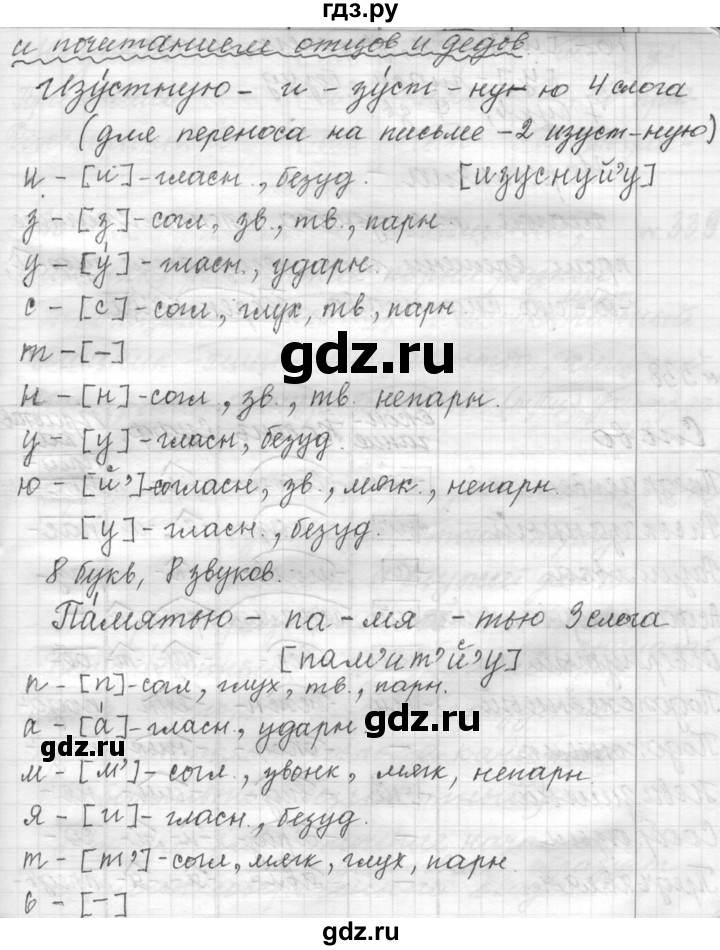 гдз.ру
и почитанием отцов и дедов.
Изу́стную - и - зу́ст - ну - ю 4 слога
(для переноса на письме - 2 изуст-ную)
и - [и] - гласн., безуд. [изуснуй'у]
з - [з] - согл, зв., тв., парн
у - [у́] - гласн., ударн.
с - [с] - согл., глух, тв., парн.
gdz.ru
т - [-]
н - [н] - согл., зв., тв. непарн.
у - [у] - гласн., безуд.
ю - [й'] - согласн, зв., мягк., непарн.
[у] - гласн., безуд.
8 букв, 8 звуков.
Па́мятью - па - мя - тью 3 слога
[пам'ит'й'у]
п - [п] - согл, глух, тв., парн.
а - [а́] - гласн., ударн
gdz.ru
gdz.ru
м - [м'] - согл., звонк, мягк, непарн.
я - [и] - гласн., безуд.
т - [т'] - согл, мягк, глух, парн.
ь - [-]
gdz.ru
gdz.ru